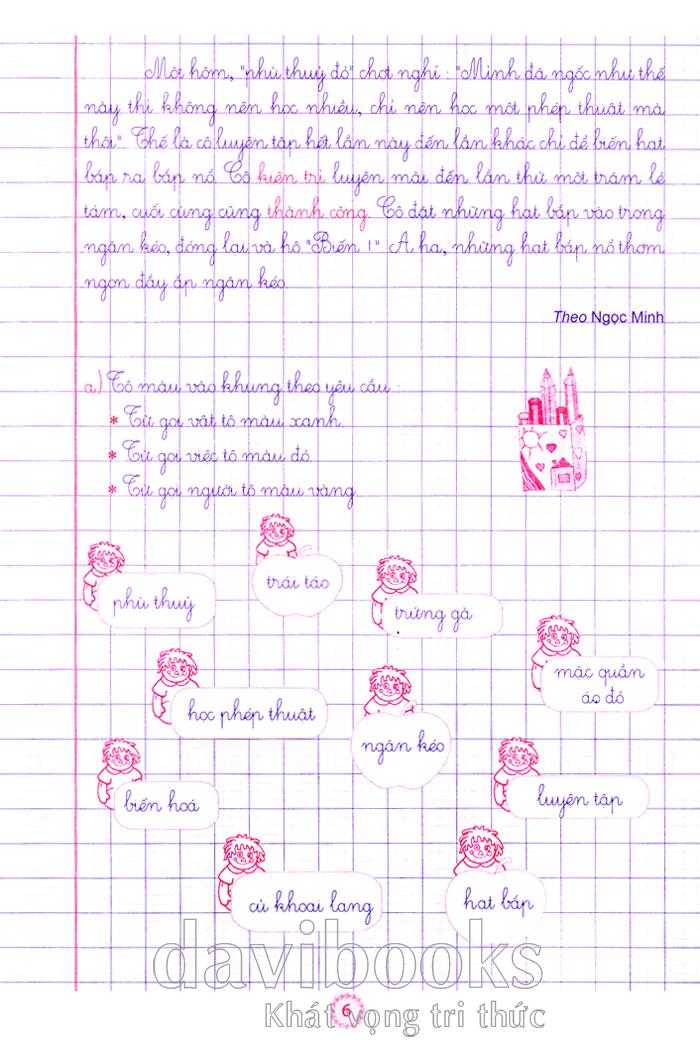 Một hôm, "phù thuỷ đỏ" chợt nghĩ : "Mình đã ngốc như thế
này thì không nên học nhiều, chỉ nên học một phép thuật mà
thôi". Thế là cô luyện tập hết lần này đến lần khác chỉ để biến hạt
bắp ra bắp nổ. Cô kiên trì luyện mãi đến lần thứ một trăm lẻ
tám, cuối cùng cũng thành công. Cô đặt những hạt bắp vào trong
ngăn kéo, đóng lại và hô "Biến !". A ha, những hạt bắp nổ thơm
ngon đầy ắp ngăn kéo.
Theo Ngọc Minh
a) Tô màu vào khung theo yêu cầu :
* Từ gọi vật tô màu xanh.
* Từ gọi việc tô màu đỏ.
* Từ gọi người tô màu vàng.
phù thuỷ
trái táo
trứng gà
mặc quần
áo đỏ
học phép thuật
ngăn kéo
biến hoá
luyện tập
củ khoai lang
hạt bắp
davibooks
Khát vọng tri thức
6